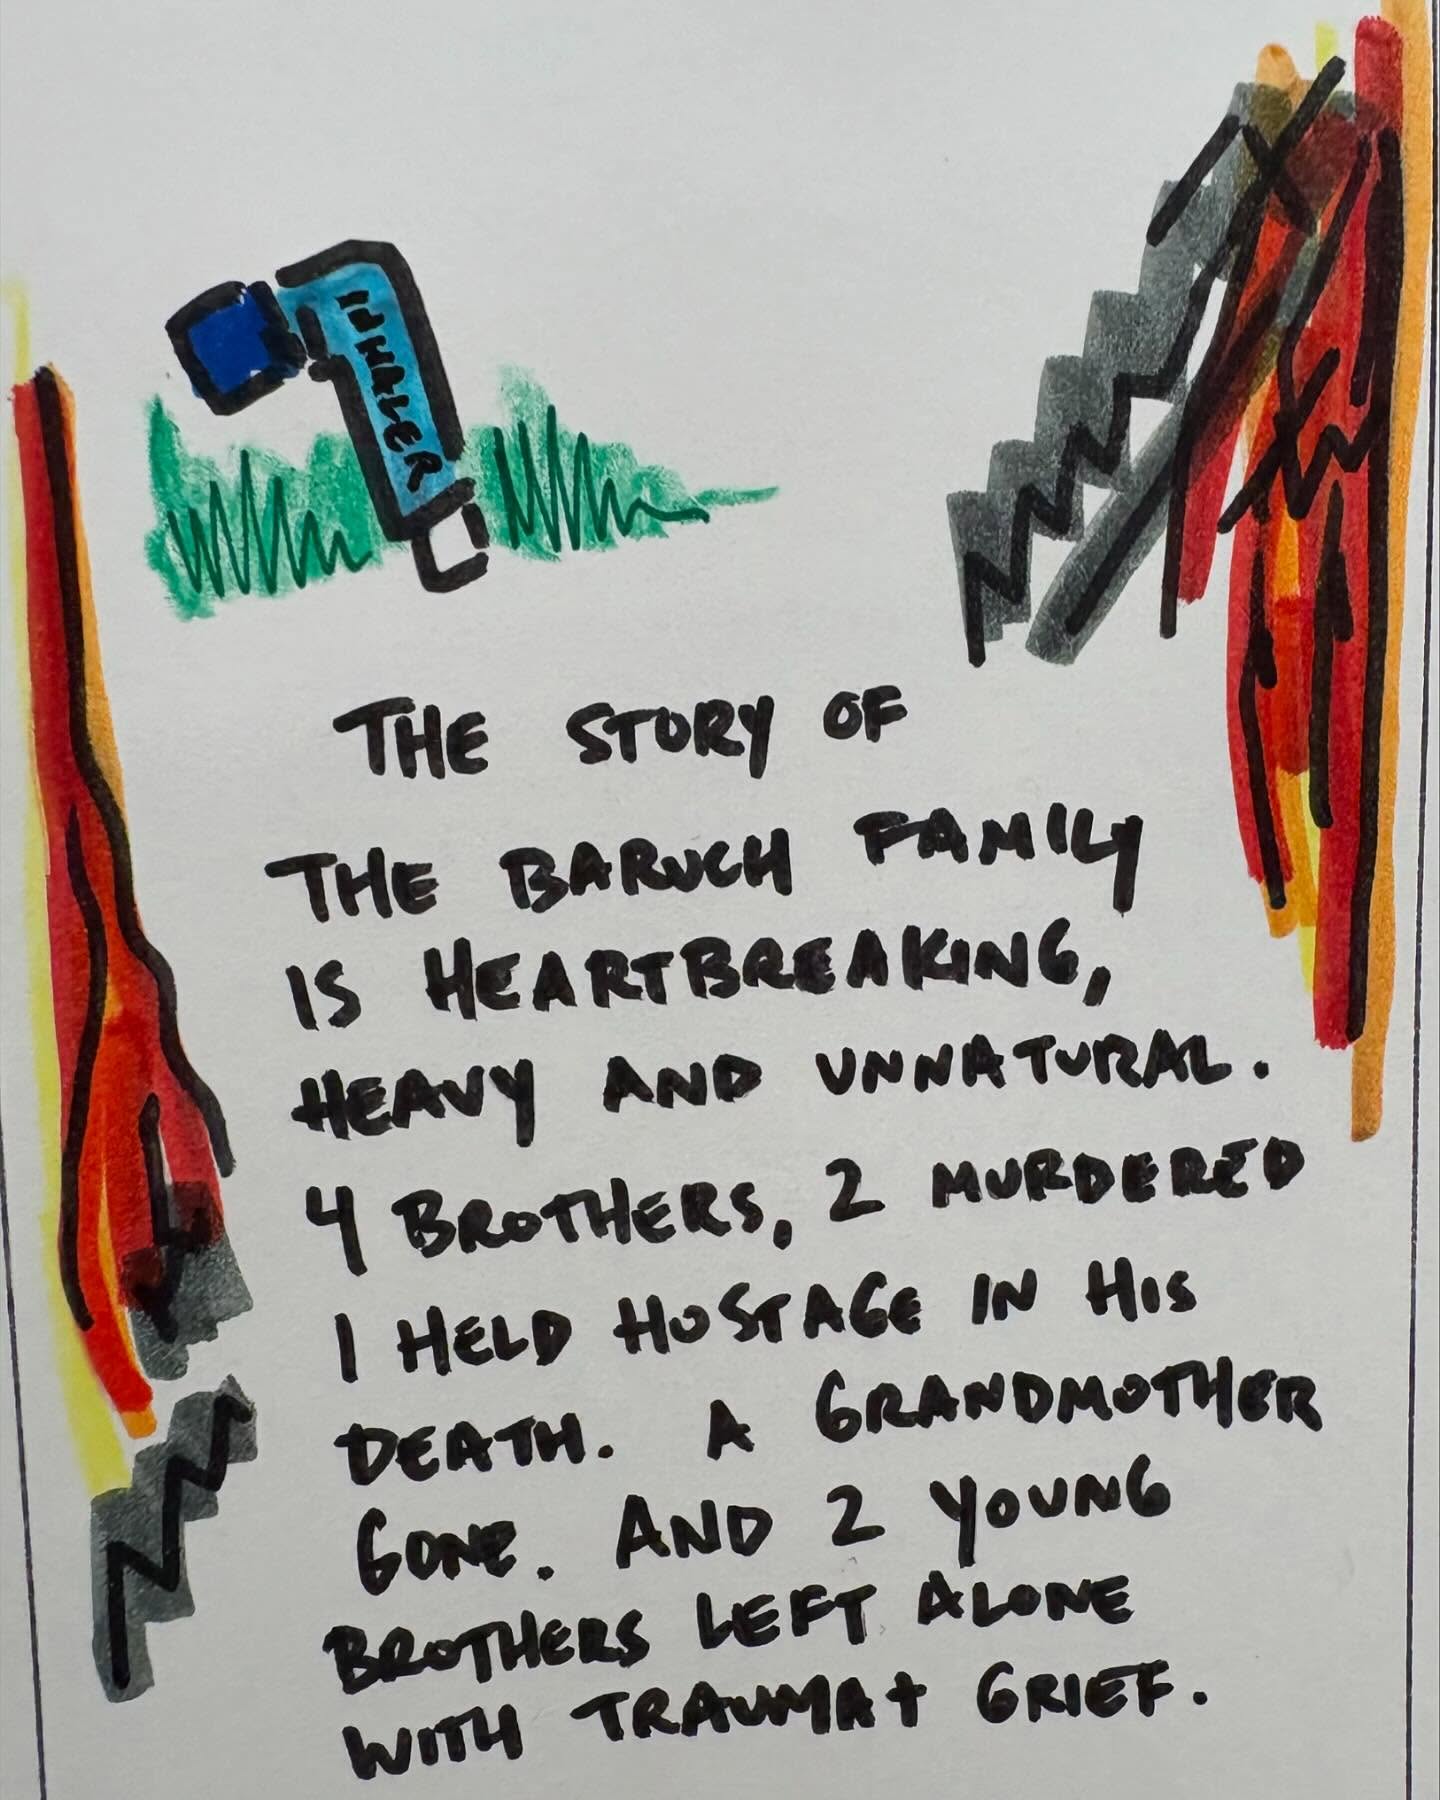 INHALER
THE STORY OF
THE BARUCH FAMILY
IS HEARTBREAKING,
HEAVY AND UNNATURAL.
4 BROTHERS, 2 MURDERED
1 HELD HOSTAGE IN HIS
DEATH. A GRANDMOTHER
GONE. AND 2 YOUNG
BROTHERS LEFT ALONE
WITH TRAUMA + GRIEF.